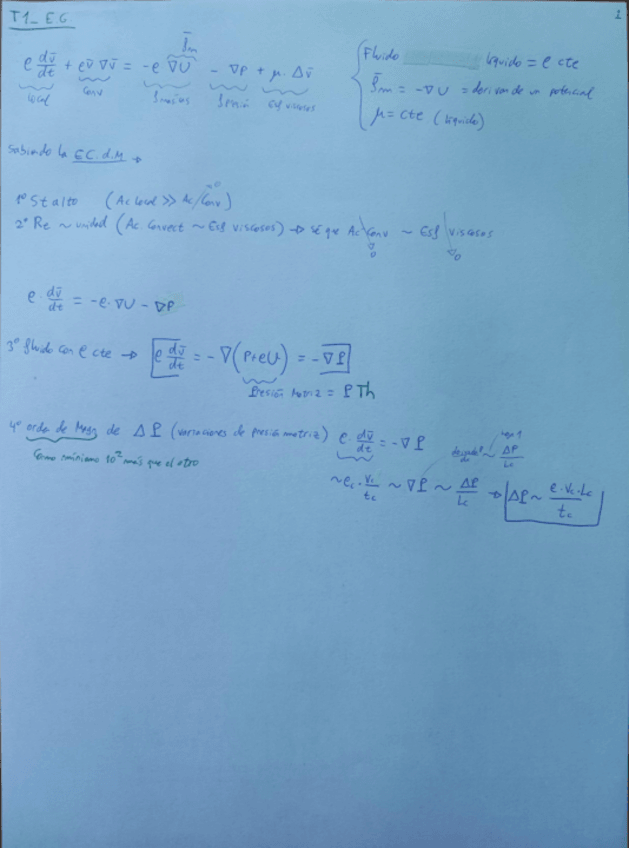 T1_EC. 1
ρ dv̄/dt + ρv̄ ∇v̄ = -ρ ∇U - ∇P + μ·Δv̄
f̄m
local conv f másicas f presión esf viscosos
Fluido líquido = ρ cte
f̄m = -∇U = derivan de un potencial
μ = cte (líquido)
Sabiendo la EC.d.M →
1º St alto (Ac local >> Ac/Conv) →0
2º Re ~ unidad (Ac. Convect ~ Esf viscosos) → sé que Ac Conv ~ Esf viscosos
→0 →0
ρ· dv̄/dt = -ρ·∇U - ∇P
3º fluido con ρ cte → ρ dv̄/dt = -∇(P+ρU) = -∇P
Presión Motriz = P Th
4º orden de Magn de ΔP (variaciones de presión motriz) ρ dv̄/dt = -∇P
Como mínimo 10² más que el otro
~ρc · Vc/tc ~ ∇P ~ ΔP/Lc → ΔP ~ ρ·Vc·Lc/tc
~ ΔP/Lc